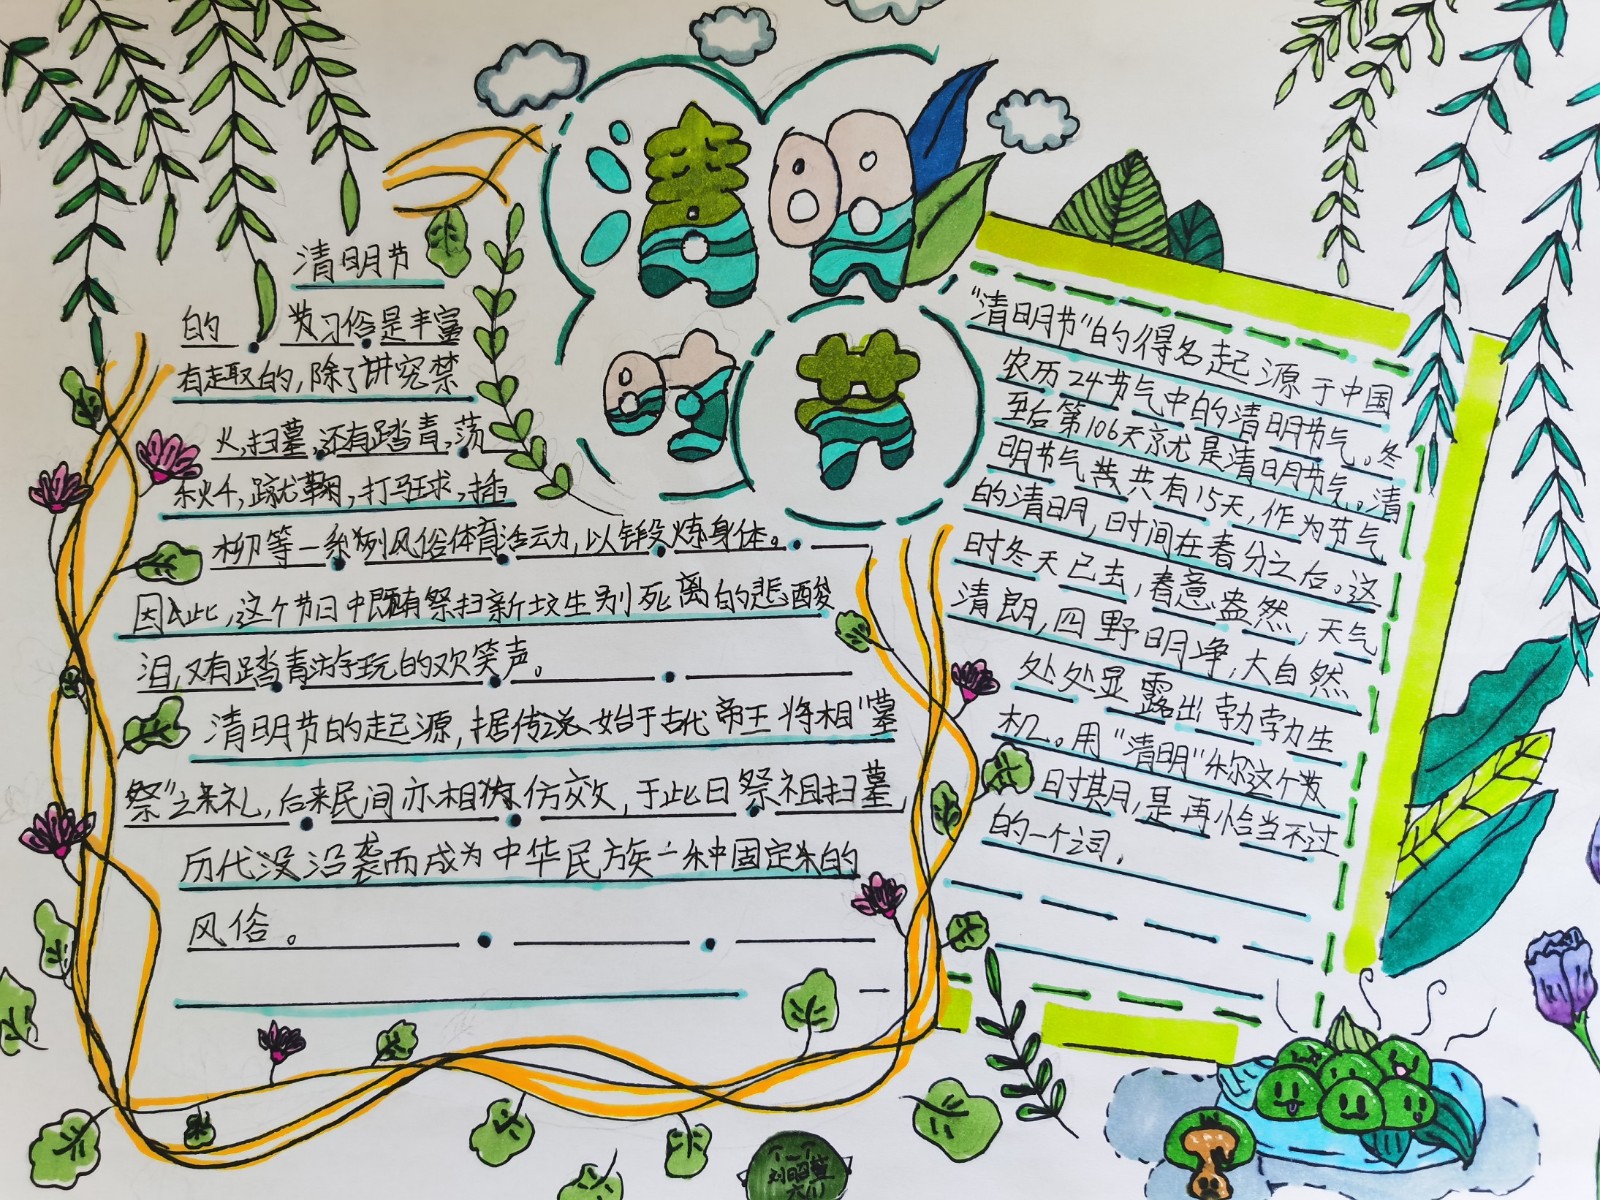 清明
时节
清明节
的 发习俗是丰富
有趣的,除了讲究禁
火,扫墓,还有踏青,荡
秋千,蹴鞠,打马球,插
柳等一系列风俗体育活动,以锻炼身体。
因此,这个节日中既有祭扫新坟生别死离的悲酸
泪,又有踏青游玩的欢笑声。
清明节的起源,据传说始于古代帝王将相“墓
祭”之礼,后来民间亦相仿效,于此日祭祖扫墓,
历代没沿袭而成为中华民族一种固定的
风俗。
“清明节”的得名起源于中国
农历24节气中的清明节气。冬
至后第106天就是清明节气。清
明节气共有15天,作为节气
的清明,时间在春分之后。这
时冬天已去,春意盎然,天气
清朗,四野明净,大自然
处处显露出勃勃生
机。用“清明”称这个
时期,是再恰当不过
的一个词,